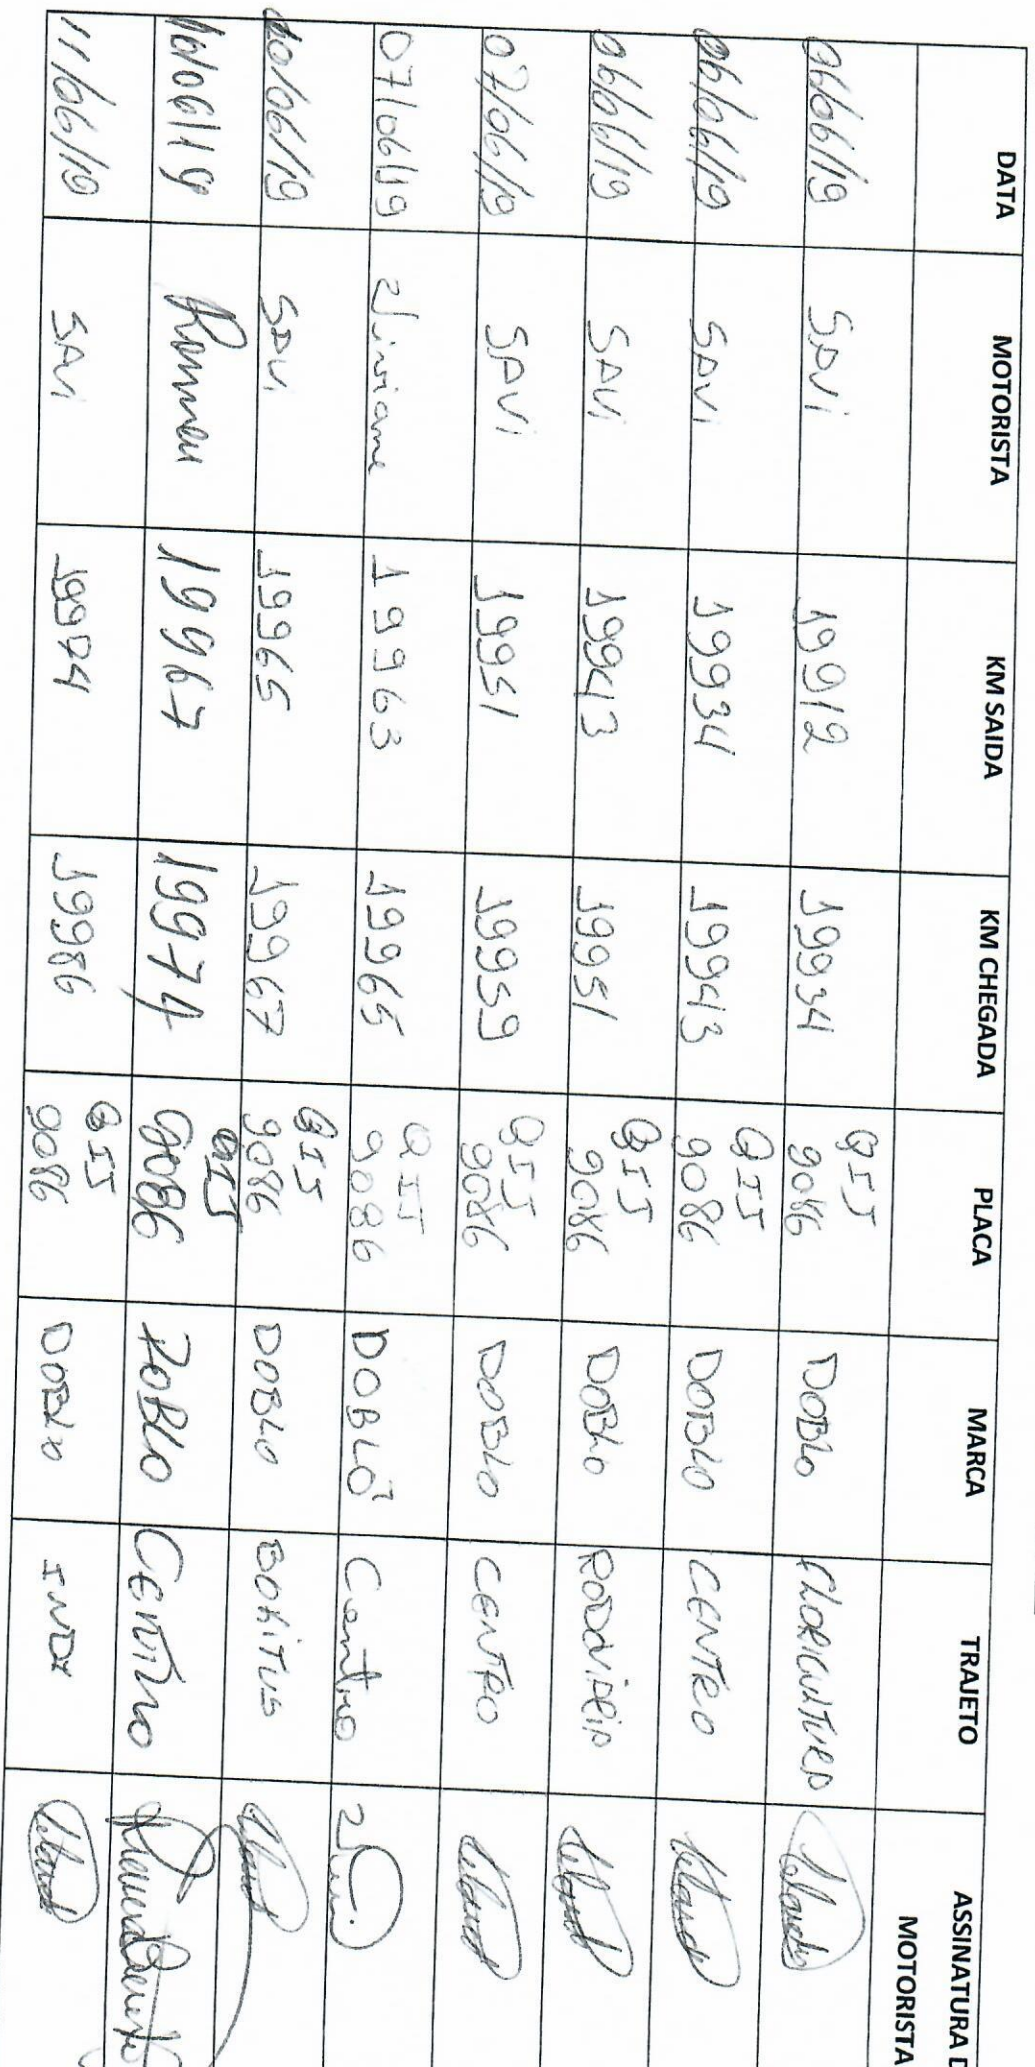 DATA MOTORISTA KM SAIDA KM CHEGADA PLACA MARCA TRAJETO ASSINATURA D
MOTORISTA
06/06/19 SAVI 19912 19934 QIJ 9086 DOBLO FLORICULTURA
06/06/19 SAVI 19934 19943 QIJ 9086 DOBLO CENTRO
06/06/19 SAVI 19943 19951 QIJ 9086 DOBLO RODOVIARIA
07/06/19 SAVI 19951 19959 QIJ 9086 DOBLO CENTRO
07/06/19 19963 19965 QIJ 9086 DOBLÔ Centro
10/06/19 SAVI 19965 19967 QIJ 9086 DOBLO
10/06/19 19967 19974 QIJ 9086 DOBLO CENTRO
11/06/19 SAVI 19974 19986 QIJ 9086 DOBLO